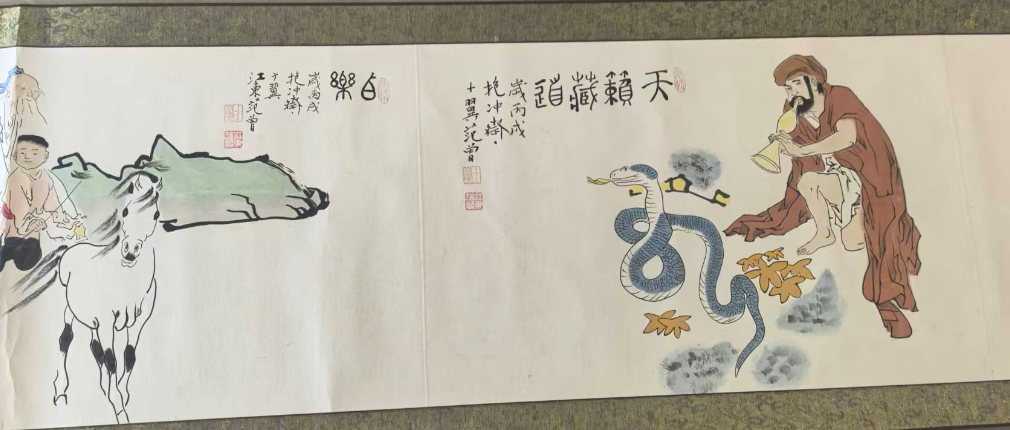 天籟藏道
歲丙戌
抱冲齋
十翼范曾
自樂
歲丙戌
抱冲齋
十翼
江東范曾